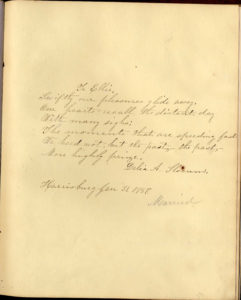 To Ellie,
So fifty our pleasures glide away,
Our hearts recall the distant day
With many sighs;
The moments that are speeding fast
We heed not, but the past, the past,
More highly prize.
Delia A.
Harrisburg Jan 31 1880
Married